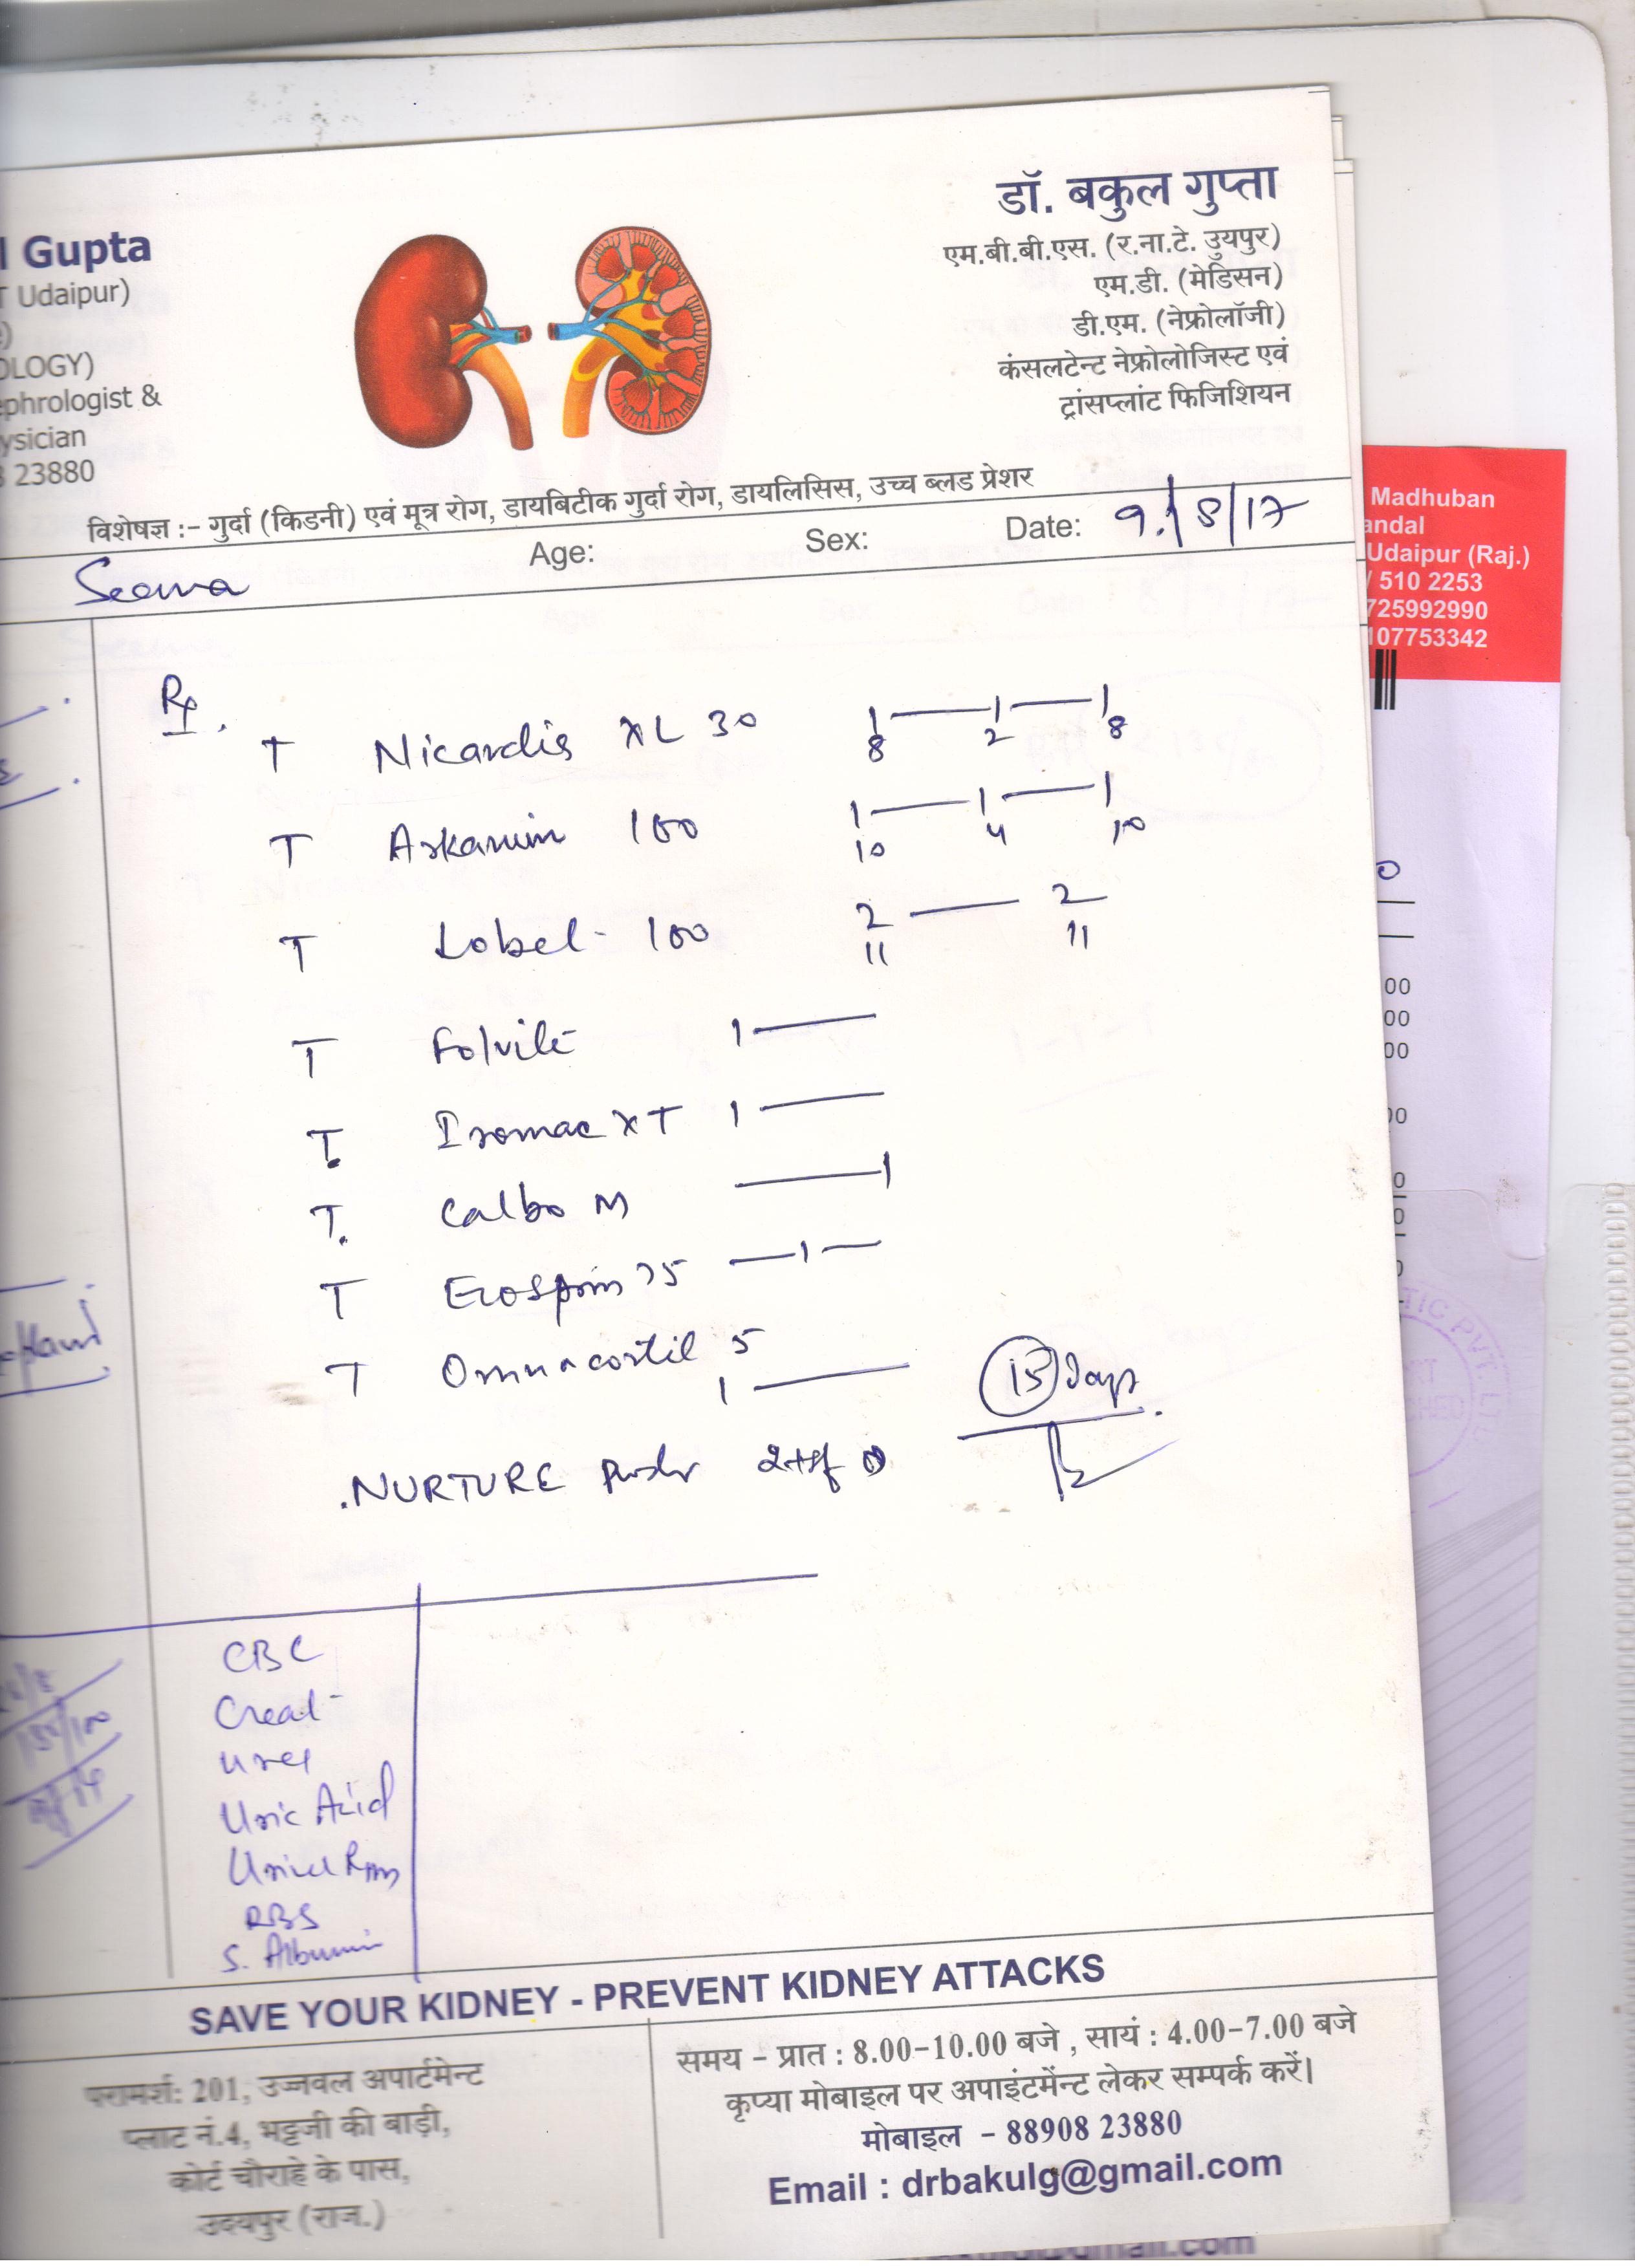 l Gupta
T Udaipur)
e)
OLOGY)
ephrologist &
ysician
8 23880
डॉ. बकुल गुप्ता
एम.बी.बी.एस. (र.ना.टे. उुयपुर)
एम.डी. (मेडिसन)
डी.एम. (नेफ्रोलॉजी)
कंसलटेन्ट नेफ्रोलोजिस्ट एवं
ट्रांसप्लांट फिजिशियन
विशेषज्ञ :- गुर्दा (किडनी) एवं मूत्र रोग, डायबिटीक गुर्दा रोग, डायलिसिस, उच्च ब्लड प्रेशर
Seema Age: Sex: Date: 9/8/17
Madhuban
andal
Udaipur (Raj.)
/ 510 2253
725992990
107753342
Rx.
T Nicardis XL 30 1 — 1 — 1
8 2 8
T Arkamin 100 1 — 1 — 1
10 4 10
T Lobel - 100 2 — 2
11 11
T Folvite 1 —
T. Iromac XT 1 —
T. Calbo M — 1
T Ecosprin 75 — 1 —
T Omnacortil 5 1 —
15 Days
NURTURE
CBC
Creat
Urea
Uric Acid
RBS
S. Albumin
SAVE YOUR KIDNEY - PREVENT KIDNEY ATTACKS
परामर्श: 201, उज्जवल अपार्टमेन्ट
प्लाट नं.4, भट्टजी की बाड़ी,
कोर्ट चौराहे के पास,
उदयपुर (राज.)
समय - प्रात : 8.00-10.00 बजे , सायं : 4.00-7.00 बजे
कृप्या मोबाइल पर अपाइंटमेंन्ट लेकर सम्पर्क करें।
मोबाइल - 88908 23880
Email : drbakulg@gmail.com